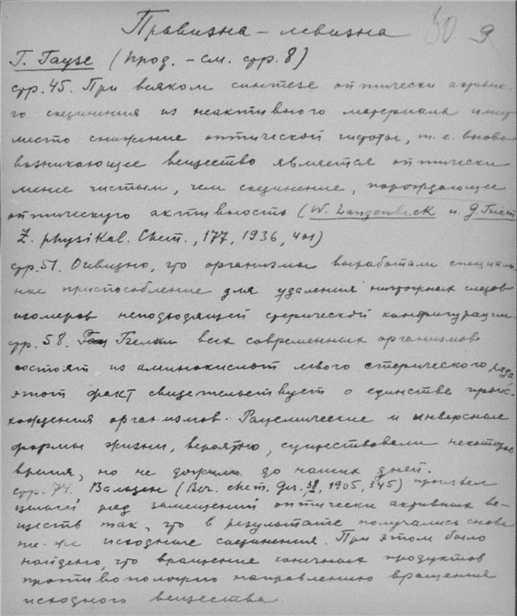 Правизна - левизна 50 9
Г. Гаузе (прод. - см. стр. 8)
стр. 45. При всяком синтезе оптически активно-
го соединения из неактивного материала имеет
место снижение оптической чистоты, т. е. вновь
возникающее вещество является оптически
менее чистым, чем соединение, порождающее
оптическую активность (W. Langenbeck и G. Triem
Z. physikal. Chem., 177, 1936, 401)
стр. 51. Очевидно, что организмы выработали специаль-
ное приспособление для удаления ничтожных следов
изомеров неподходящей сферической конфигурации.
стр. 58. Белки всех современных организмов
состоят из аминокислот левого стерического ряда,
этот факт свидетельствует о единстве проис-
хождения организмов. Рацемические и инверсные
формы жизни, вероятно, существовали некоторое
время, но не дожили до наших дней.
стр. 74. Вальден (Ber. chem. Ges. 38, 1905, 345) произвел
целый ряд замещений оптически активных ве-
ществ так, что в результате получались снова
те-же исходные соединения. При этом было
найдено, что вращение конечных продуктов
противоположно направлению вращения
исходного вещества